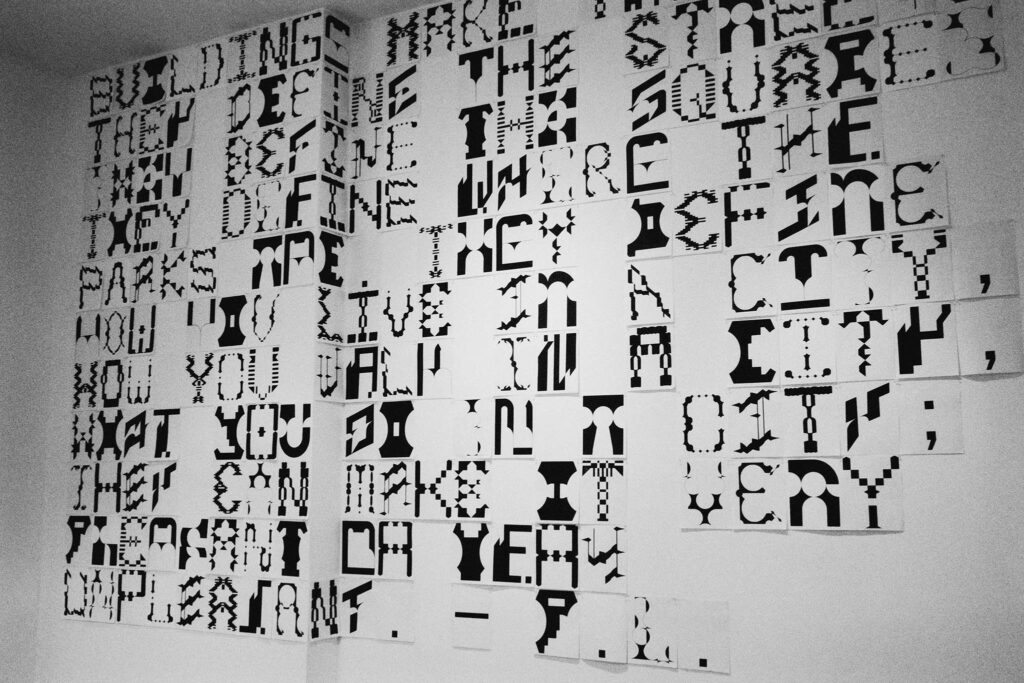 BUILDINGS MAKE
THEY DEFINE THE
THEY DEFINE THE SQUARES
THEY DEFINE WHERE THE
PARKS ARE. THEY DEFINE
HOW YOU LIVE IN A CITY,
HOW YOU WALK IN A CITY,
WHAT YOU DO IN A CITY;
THEY CAN MAKE IT VERY
PLEASANT OR VERY
UNPLEASANT. – P.R.